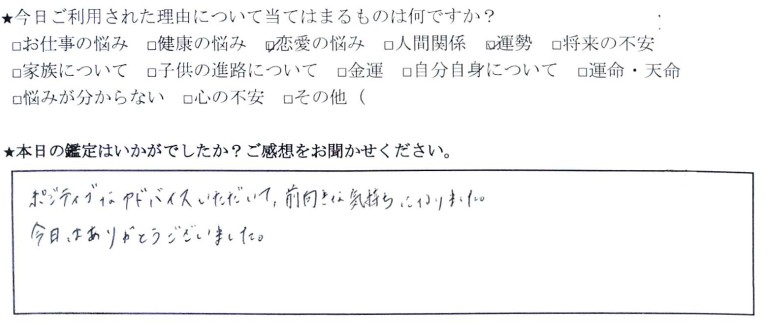 ★今日ご利用された理由について当てはまるものは何ですか？
□お仕事の悩み □健康の悩み ☑恋愛の悩み □人間関係 ☑運勢 □将来の不安
□家族について □子供の進路について □金運 □自分自身について □運命・天命
□悩みが分からない □心の不安 □その他（
★本日の鑑定はいかがでしたか？ご感想をお聞かせください。
ポジティブなアドバイスいただいて、前向きな気持ちになりました。
今日はありがとうございました。